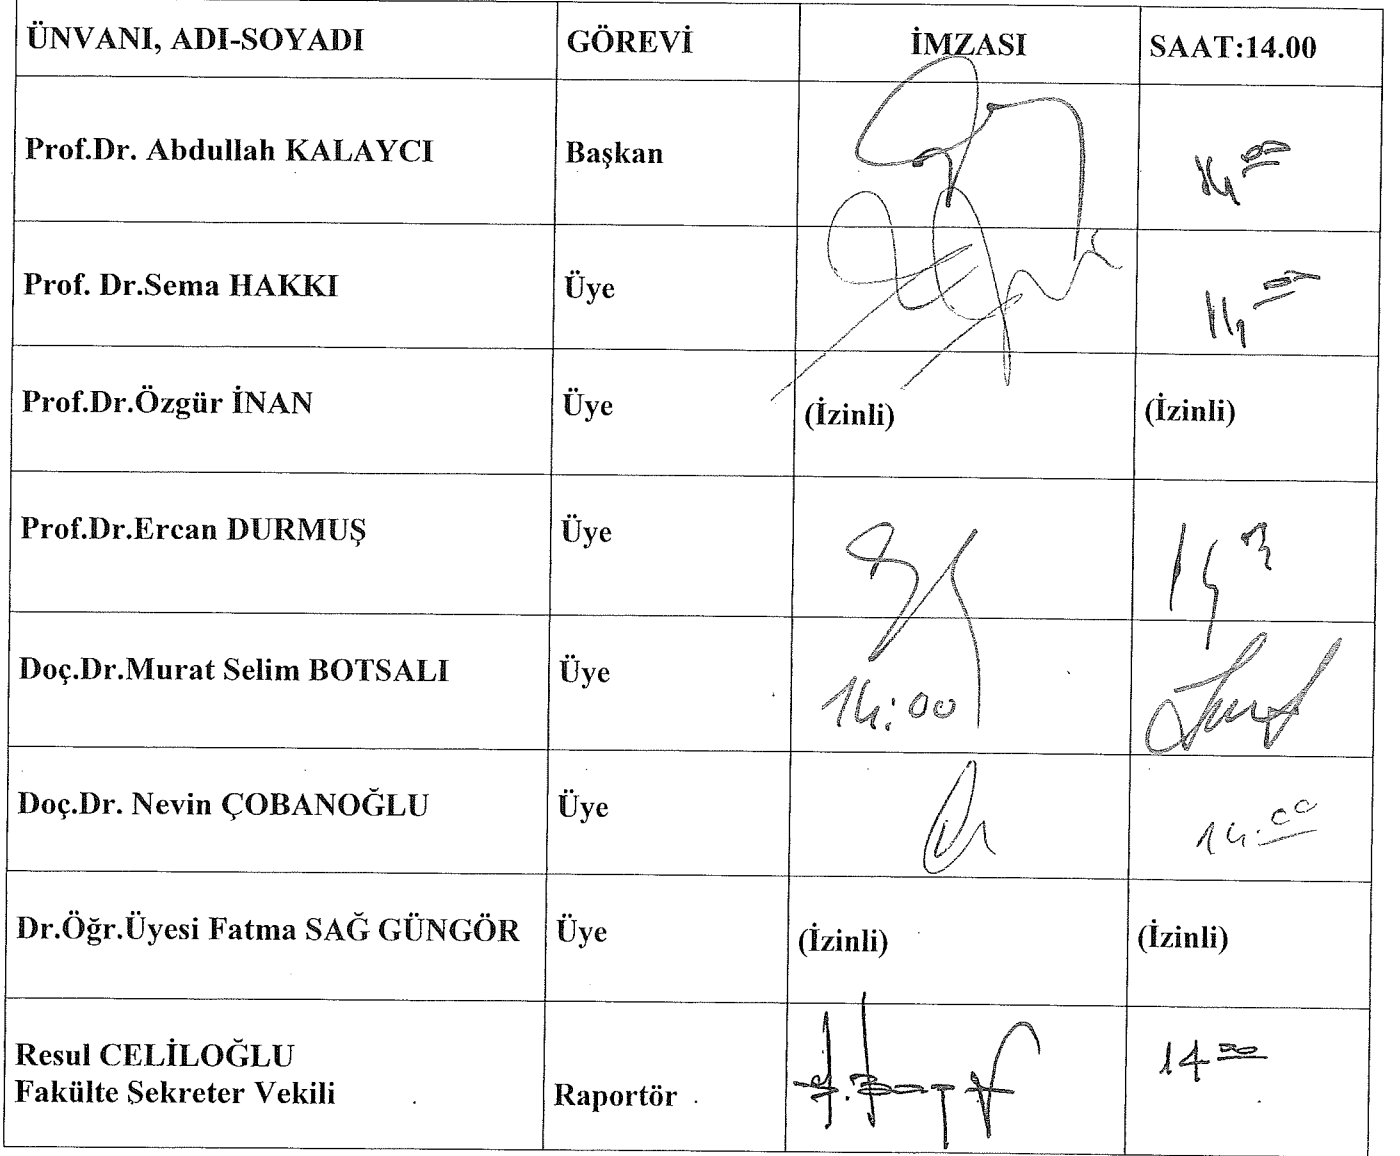 ÜNVANI, ADI-SOYADI GÖREVİ İMZASI SAAT:14.00
Prof.Dr. Abdullah KALAYCI Başkan
Prof. Dr.Sema HAKKI Üye
Prof.Dr.Özgür İNAN Üye (İzinli) (İzinli)
Prof.Dr.Ercan DURMUŞ Üye
Doç.Dr.Murat Selim BOTSALI Üye 14:00
Doç.Dr. Nevin ÇOBANOĞLU Üye 14.00
Dr.Öğr.Üyesi Fatma SAĞ GÜNGÖR Üye (İzinli) (İzinli)
Resul CELİLOĞLU
Fakülte Sekreter Vekili Raportör 14 00